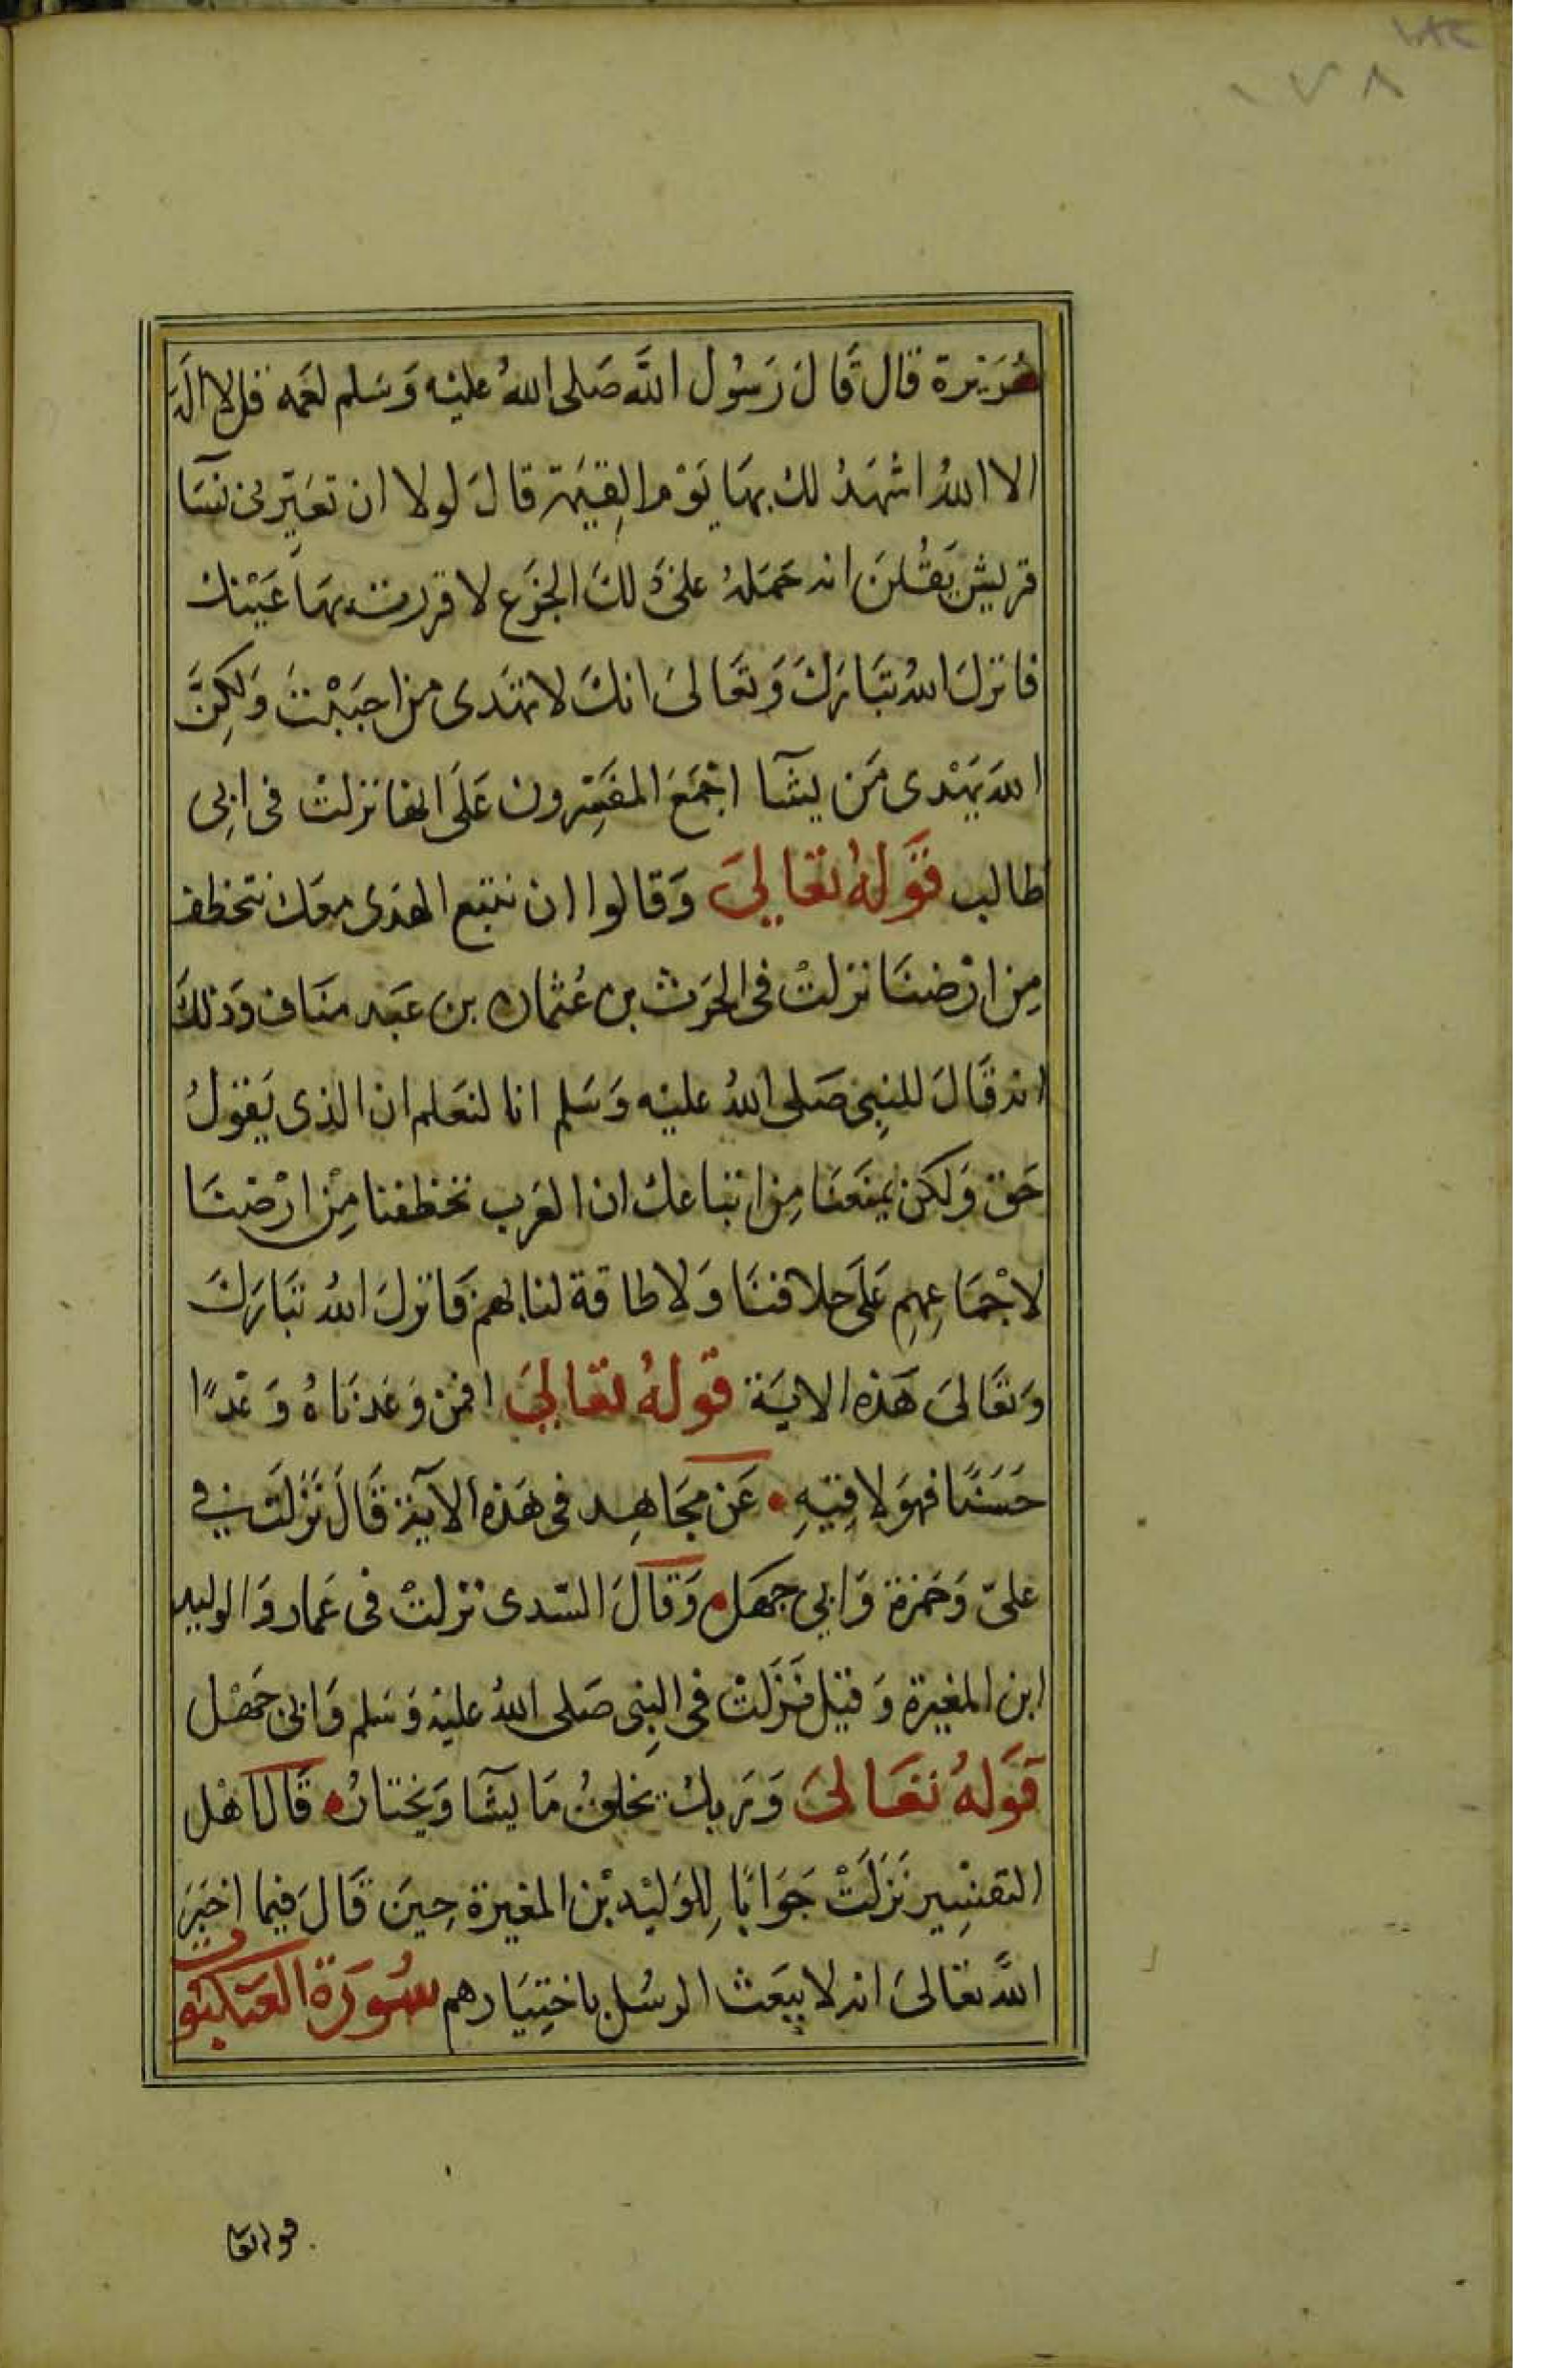 ١٨٢
١٧٨
هُرَيرة قال قَالَ رَسُول اللَّه صَلى اللهُ عليْه وَسَلم لعَمه قل لا اله
الا اللهُ اشهَدُ لك بهَا يَوْم القِيٰمة قالَ لولا ان تعَيِّرنى نسَآ
قريش يَقُلنَ انه حمَلهُ على ذَلكَ الجزَع لا قررت بهَا عَيْنك
فانزلَ اللهُ تبَارَكَ وَتعَالىَ انكَ لا تهَدى من احبَبْتَ وَلكِنَّ
اللهَ يَهْدى مَن يشآ اجْمَعَ المفسِّرون عَلَى انها نزلتْ فى ابِى
طالب قَولهُ تعَالىَ وَقالوا ان نتبع الهدَى معَك نتخطف
مِن ارْضنَا نزلتْ فى الحرَث بن عُثمان بن عَبد منَاف وَذلكَ
انه قَالَ للنبِى صَلى اللهُ عليْه وَسَلم انا لنعَلم ان الذى يَقولُ
حَق وَلكن يمنَعنَا مِن اتباعك ان العَرب تخطفنا مِنْ ارْضنَا
لاجْمَاعِهِم عَلَى خلافنَا وَلا طاقة لنا بهم فَانزلَ اللهُ تبَارَكَ
وَتعَالىَ هَذه الايَة قولهُ تعَالىَ افمن وَعَدنَاهُ وَعْدًا
حَسَنًا فهوَ لاقِيْهِ • عَن مجَاهِد فى هَذه الآية قَالَ نَزلَت في
علىّ وَحَمزة وَابي جهَل • وَقالَ السّدى نزلتْ فى عَمار وَالوليد
ابن المغيرة وَقيْل نَزَلتْ فى النبِى صَلى اللهُ عليْه وَسَلم وَابى جهْل
قَولهُ تعَالىَ وَرَبك يخلقُ مَا يشَآ وَيختارُ • قَالَ اهْل
التفسِْير نَزَلَتْ جَوَابًا لِلوَليْد بْن المغيرة حِينَ قَالَ فيما اخبَرَ
اللَّه تعَالىَ انه لا يبعَث الرسُل باختِيَارهم سُورَة العنكبوت
قوله تعا